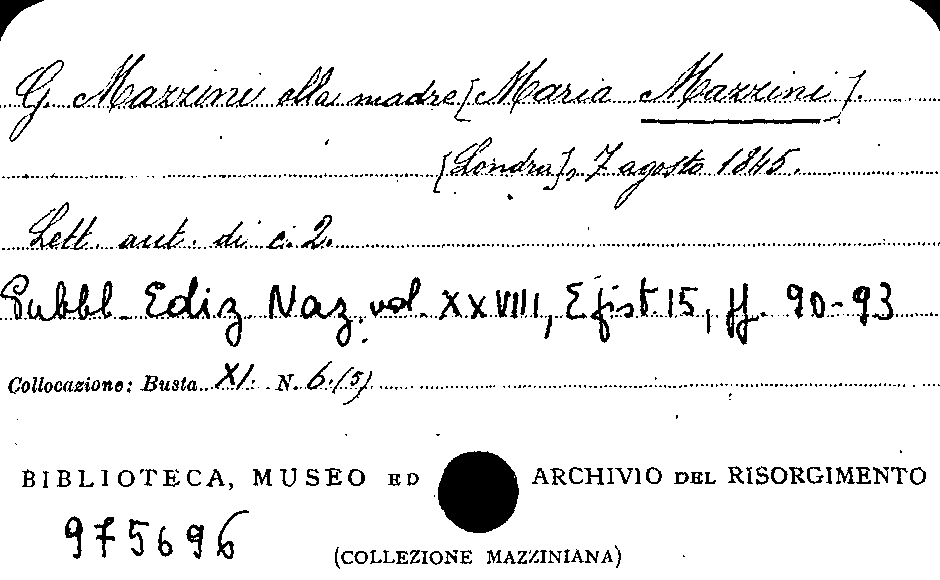 G. Mazzini alla madre [Maria Mazzini].
[Londra], 7 agosto 1845.
Lett. aut. di c. 2.
Pubbl. Ediz Naz. vol. XXVIII, Epist. 15, pp. 90-93
Collocazione: Busta XI. N. 6.(5)
BIBLIOTECA, MUSEO ED ARCHIVIO DEL RISORGIMENTO
975696
(COLLEZIONE MAZZINIANA)